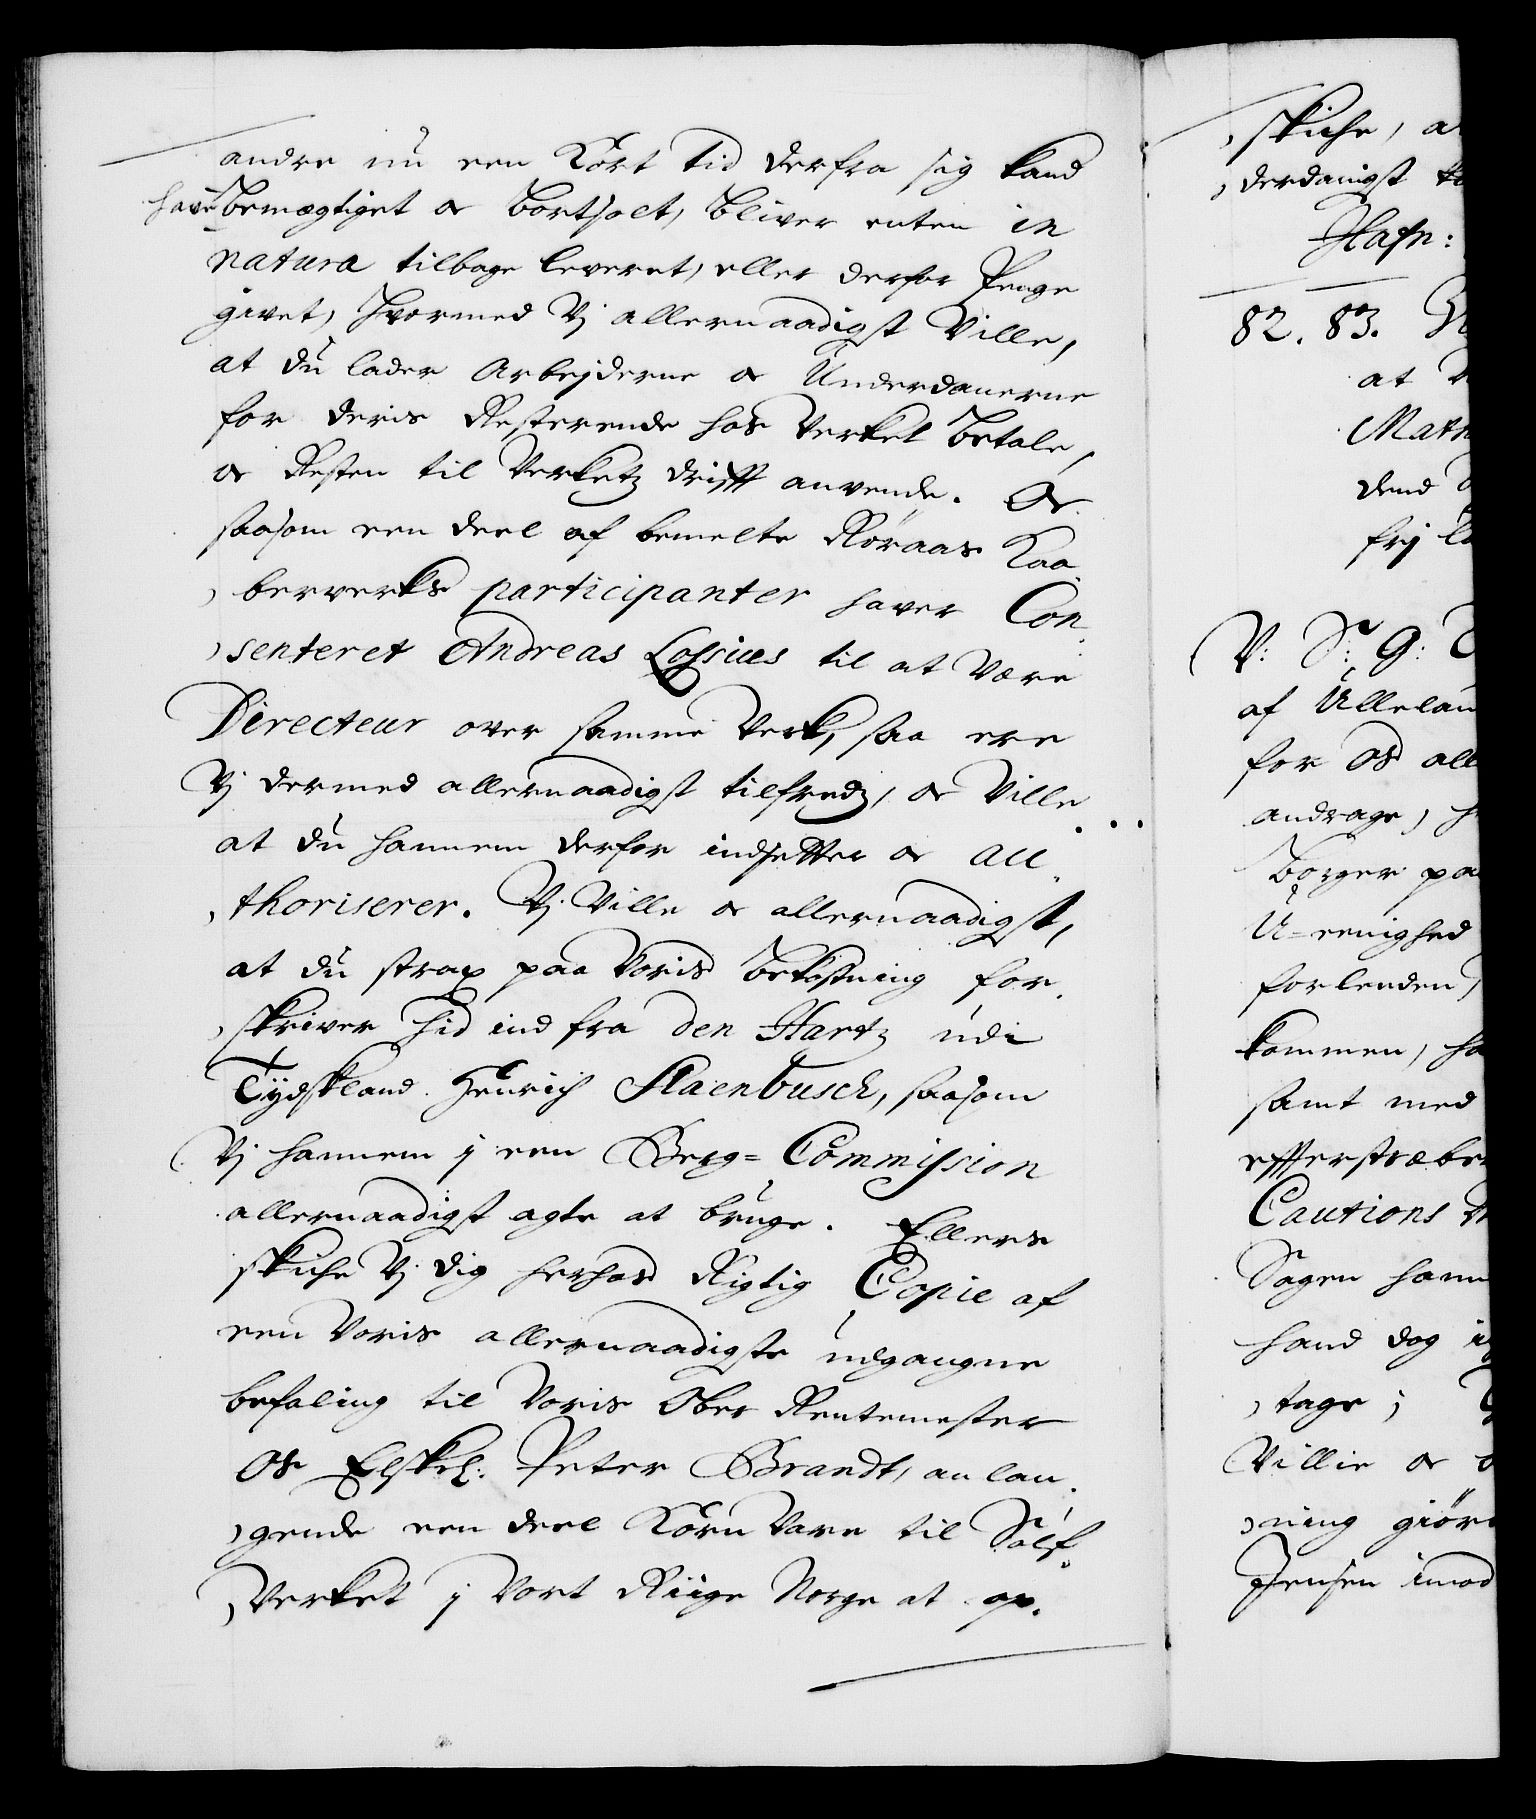 andre nu een Kort Tid derfra sig kand
hafve bemægtiget oc bortsolt, bliver enten in
natura tilbage leveret, eller derfor Penge
givet, hvormed Vj allernaadigst Ville,
at du lader Arbejderne oc Underdanerne
for deris Resterende hos Verket betale,
oc Resten til Verketz drifft anvende. Oc
saasom een deel af bemelte Røraas Kaa-
berverks participanter haver Con-
senteret Andreas Lossius til at være
Directeur over samme Verk, saa ere
Vj dermed allernaadigst tilfredz, oc Ville
at du hannem derfor indsetter oc au-
thoriserer. Vj Ville oc allernaadigst,
at du strax paa Voris bekostning for-
skriver hid ind fra den Hartz udi
Tydskland Henrich Slaenbusch, saasom
Vj hannem j een Berg= Commission
allernaadigst agte at bruge. Ellers
skiche Vj dig herhos Rigtig Copie af
een Voris allernaadigste udgangne
befaling til Voris Ober Rentemester
Os Elskel: Peter Brandt, anlan-
gende een deel Korn Vare til Sølf-
Verket j Vort Riige Norge at op-
skiche, a
derdanigst
Hafn:
82. 83.
at
dend
frj
V: S: G:
af Ullelan
for Os all
andrage, h
Borger pa
U=eenighed
forlenden,
kommen, ha
samt med
effterstræbe
Cautions
Sagen hann
hand dog
tage;
Villie oc
ning giør
Jensen imod